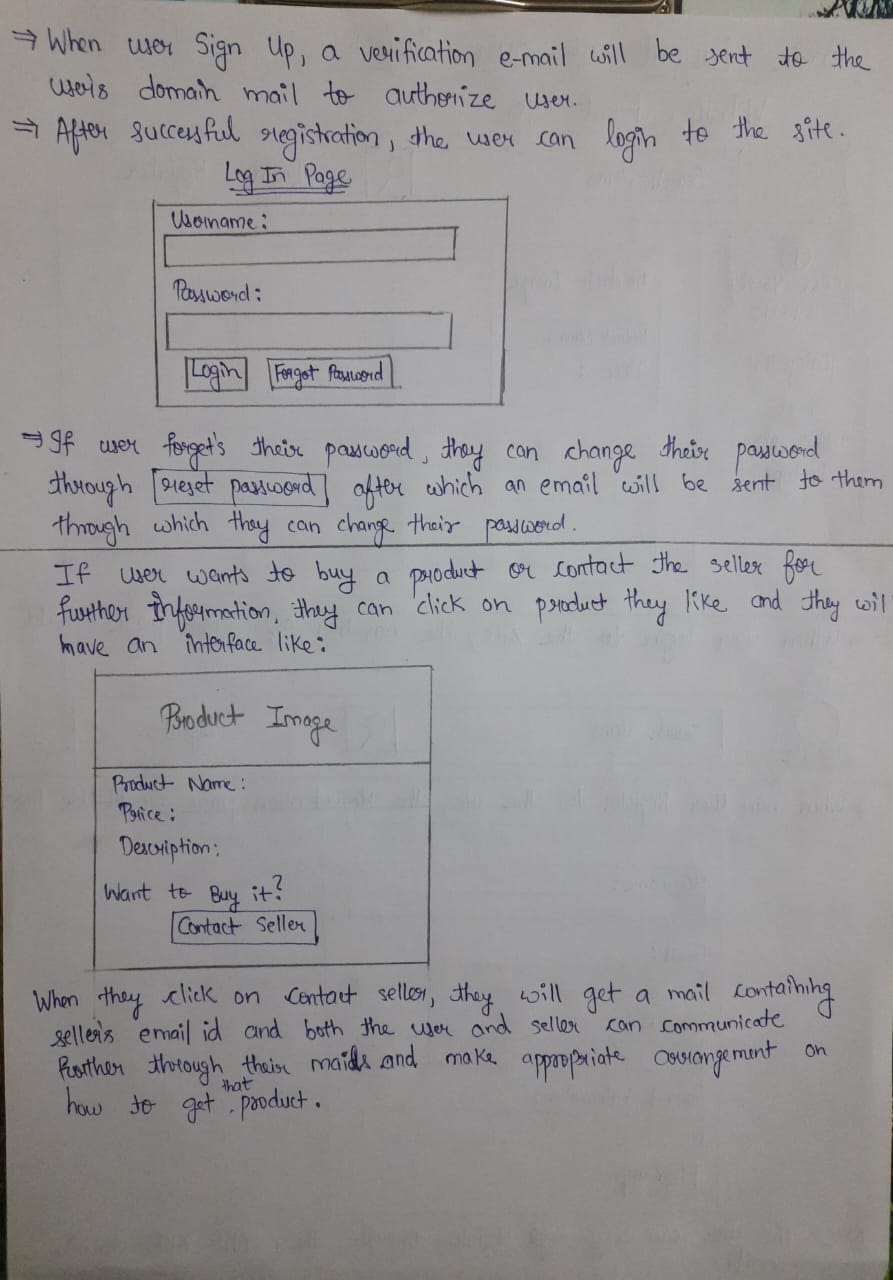 ⇒ When user Sign Up, a verification e-mail will be sent to the
user's domain mail to authorize user.
⇒ After successful registration, the user can login to the site.
Log In Page
Username:
Password:
Login Forgot Password
⇒ If user forget's their password, they can change their password
through reset password after which an email will be sent to them
through which they can change their password.
If user wants to buy a product or contact the seller for
further information, they can click on product they like and they wil
have an interface like:
Product Image
Product Name:
Price:
Description:
Want to Buy it?
Contact Seller
When they click on contact seller, they will get a mail containing
seller's email id and both the user and seller can communicate
further through their maids and make appropriate arrangement on
how to get that product.